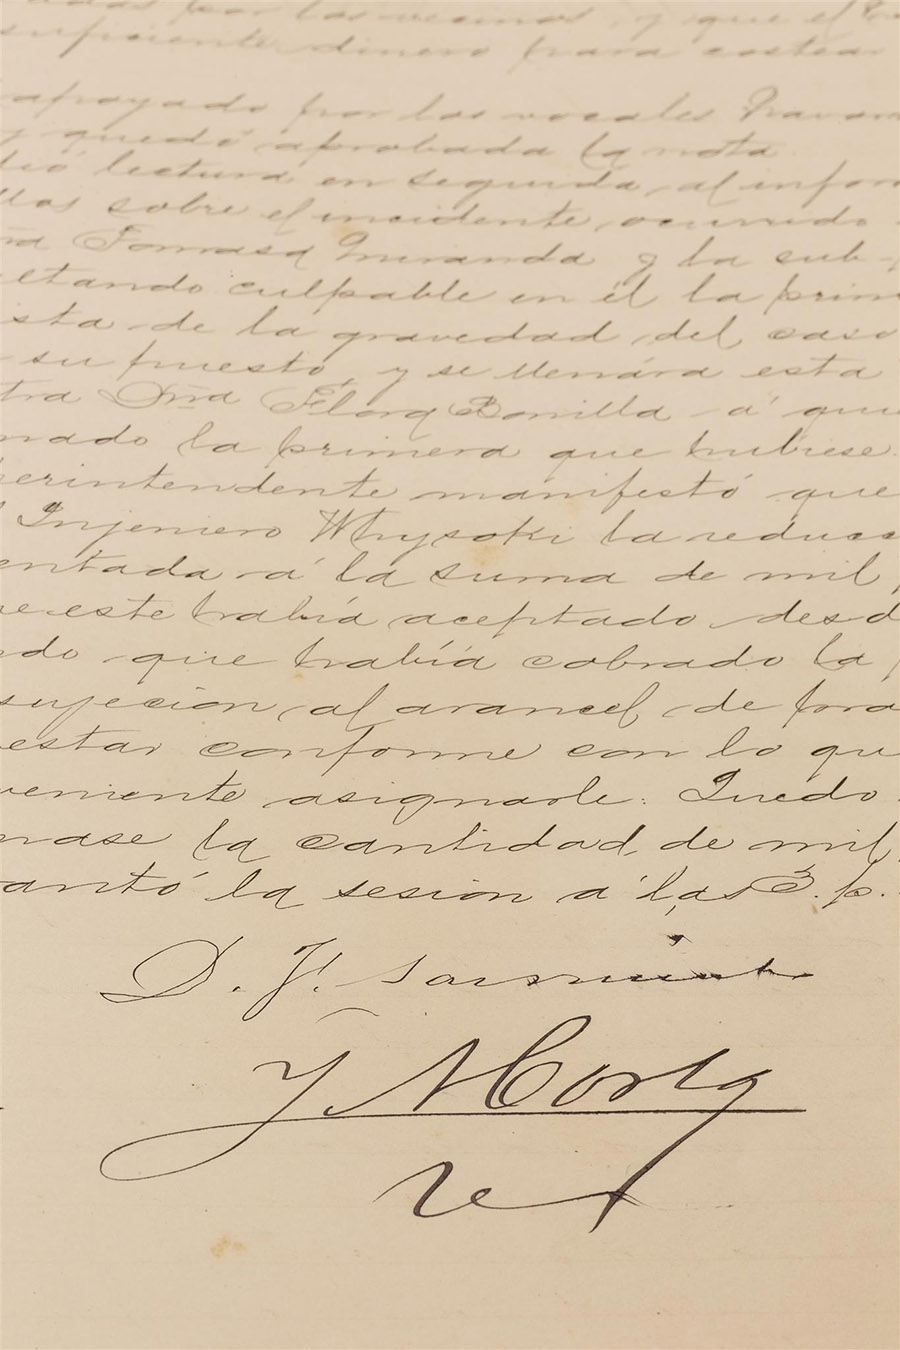 adas por los vecinos, y que el
suficiente dinero para costear
apoyado por los vocales Navarr
y quedó aprobada la nota.
dió lectura en seguida, al infor
llos sobre el incidente, ocurrido
ña Tomasa Miranda y la sub-
ultando culpable en él la prim
ista de la gravedad, del caso
su puesto, y se llenára esta
tra Dña Flora Bonilla á qui
nado la primera que hubiese
perintendente manifestó que
Injeniero Whysoki la reducc
entada á la suma de mil,
ue este había aceptado desd
ndo que había cobrado la
sujecion al arancel de
estar conforme con lo que
veniente asignarle. Quedo
nase la cantidad de mil
antó la sesión á las 3. p.
D. F. Sarmiento